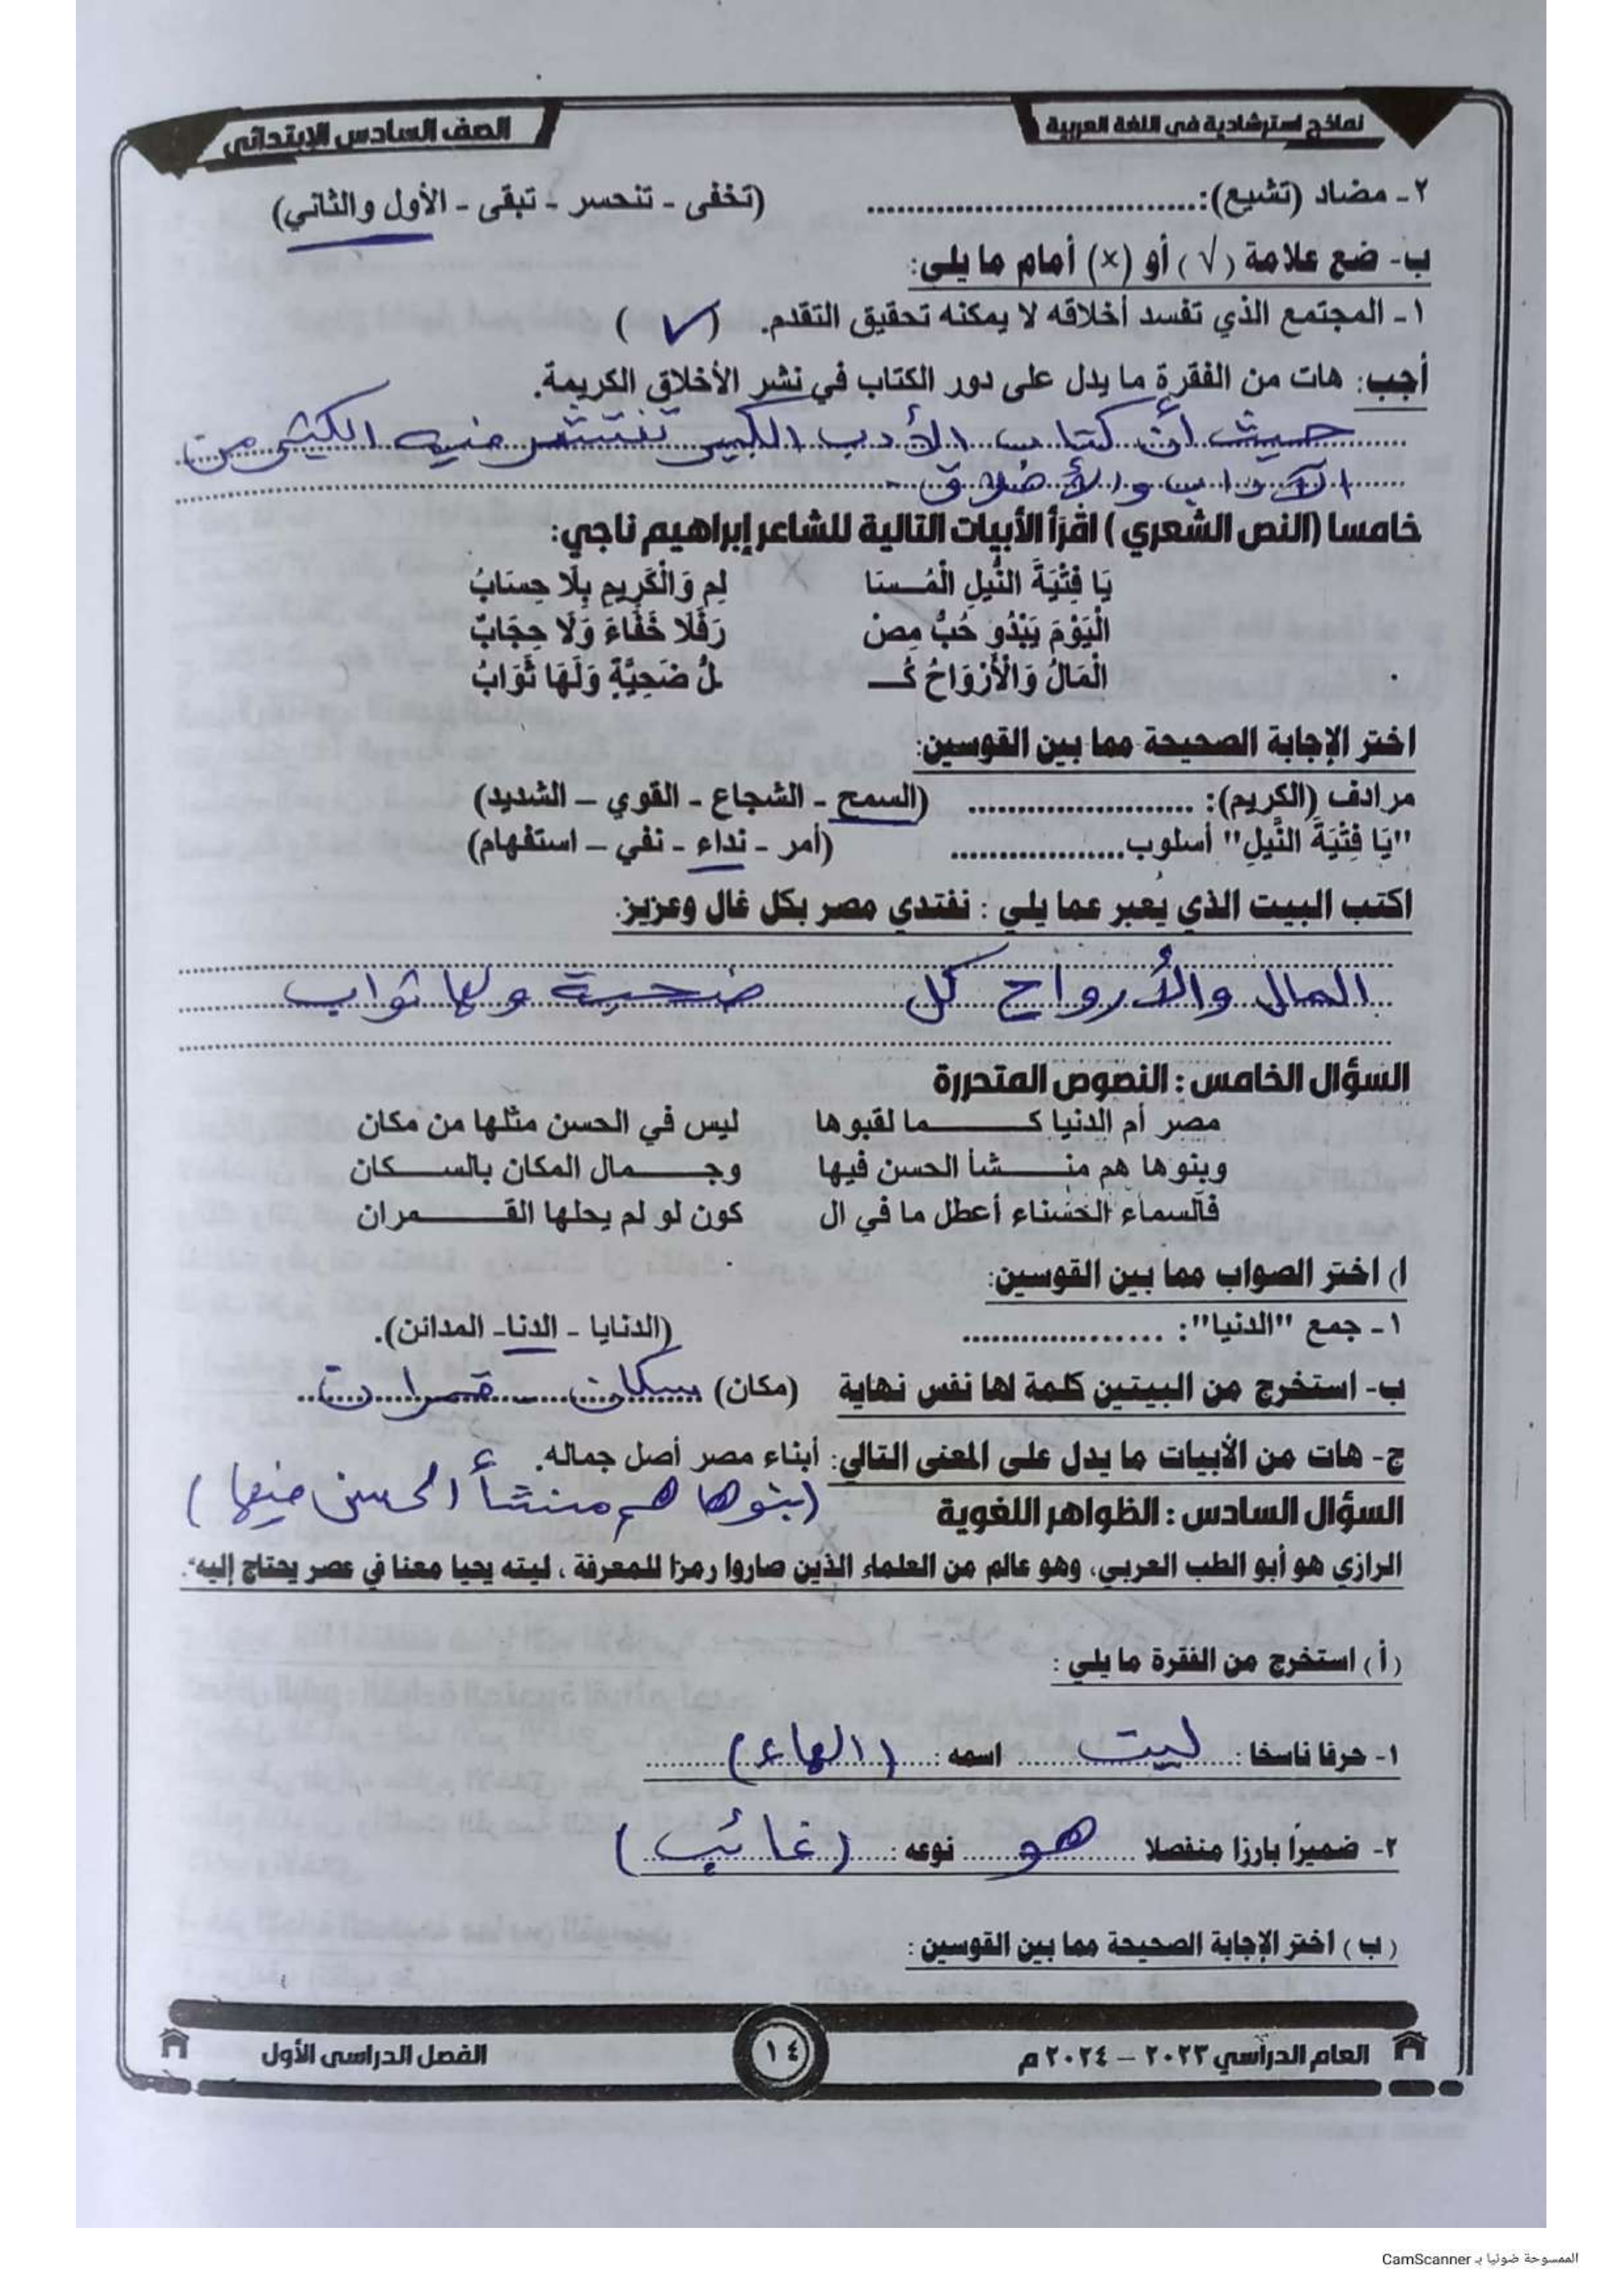 نماذج استرشادية فى اللغة العربية
الصف السادس الإبتدائى
٢- مضاد (تشيع): .................... (تخفى - تنحسر - تبقى - الأول والثاني)
ب- ضع علامة (√) أو (×) أمام ما يلى:
١- المجتمع الذي تفسد أخلاقه لا يمكنه تحقيق التقدم. ( ✓ )
أجب: هات من الفقرة ما يدل على دور الكتاب في نشر الأخلاق الكريمة.
حيث أن كتاب الأدب الكبير تنتشر فيه الكثير من
الآداب والأخلاق.
خامسا (النص الشعري) اقرأ الأبيات التالية للشاعر إبراهيم ناجي:
يَا فِتْيَةَ النِّيلِ الْمُـــسَا لِمِ وَالْكَرِيمِ بِلَا حِسَابْ
الْيَوْمَ يَبْدُو حُبُّ مِصْ رَ فَلَا خَفَاءَ وَلَا حِجَابْ
الْمَالُ وَالْأَرْوَاحُ كُــ لُّ ضَحِيَّةٍ وَلَهَا ثَوَابْ
اختر الإجابة الصحيحة مما بين القوسين:
مرادف (الكريم): .................... (السمح - الشجاع - القوي – الشديد)
"يَا فِتْيَةَ النِّيلِ" أسلوب.................. (أمر - نداء - نفي – استفهام)
اكتب البيت الذي يعبر عما يلي : نفتدي مصر بكل غال وعزيز.
المال والأرواح كل ضحية ولها ثواب
السؤال الخامس : النصوص المتحررة
مصر أم الدنيا كـــــــما لقبوها ليس في الحسن مثلها من مكان
وبنوها هم منـــــشأ الحسن فيها وجـــــمال المكان بالســـــكان
فالسماء الحسناء أعطل ما في ال كون لو لم يحلها القـــــمران
ا) اختر الصواب مما بين القوسين:
١- جمع "الدنيا": .................. (الدنايا - الدنا- المدائن).
ب- استخرج من البيتين كلمة لها نفس نهاية (مكان) سكان - قمران
ج- هات من الأبيات ما يدل على المعنى التالي: أبناء مصر أصل جماله.
(بنوها هم منشأ الحسن فيها)
السؤال السادس : الظواهر اللغوية
الرازي هو أبو الطب العربي، وهو عالم من العلماء الذين صاروا رمزا للمعرفة ، ليته يحيا معنا في عصر يحتاج إليه".
(أ) استخرج من الفقرة ما يلي :
١- حرفا ناسخا : ليت اسمه : (الهاء)
٢- ضميرًا بارزا منفصلا هو نوعه : (غائب)
(ب) اختر الإجابة الصحيحة مما بين القوسين :
العام الدراسي ٢٠٢٣ – ٢٠٢٤ م
١٤
الفصل الدراسى الأول
الممسوحة ضوئيا بـ CamScanner